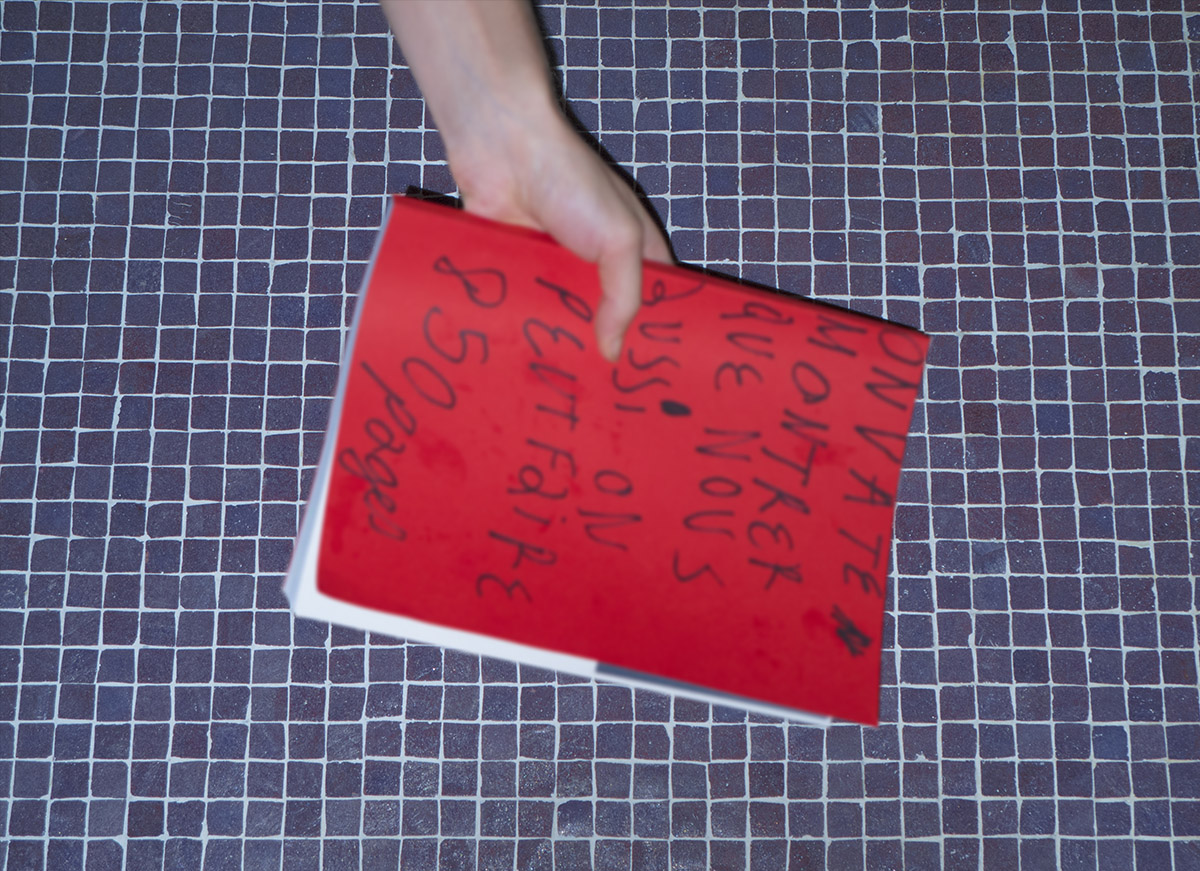 ON VA TE
MONTRER
QUE NOUS
aUSSi ON
PEUT FaiRE
850 pages